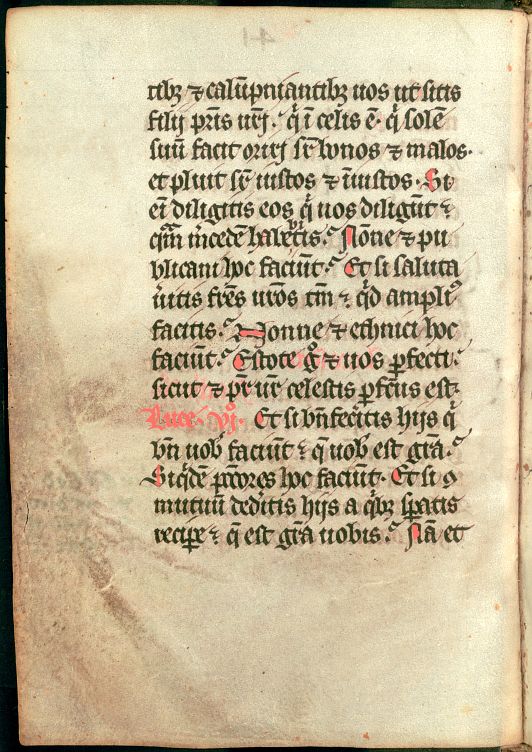 41
tibꝫ ⁊ calūpniantibꝫ uos ut sitis
filij pr̄is ur̄i. q̇ ī celis ē. q̇ solē
suū facit oriri sr̄ bonos ⁊ malos.
et pluit sr̄ iustos ⁊ īiustos. Si
eī diligitis eos q̇ uos diligūt
mercedē habebitis. Nōne ⁊ pu
blicani hoc faciūt. Et si saluta
ūitis fr̄es ur̄os tm̄ qͥd ampliꝰ
facitis. Nonne ⁊ ethnici hoc
faciūt. Estote gͦ ⁊ uos ꝑfecti.
sicut ⁊ pr̄ ur̄ celestis ꝑfc̄us est.
Luce. vjͦ. Et si bn̄fec̄itis hijs q̇
bn̄ uob̄ faciūt q̄ uob̄ est gr̄a.
Siqͥdē pc̄c̄ores hoc faciūt. Et si
mutuū dedītis hijs a qͥbꝫ sꝑatis
reciꝑe q̄ est gr̄a uobis. Nā et